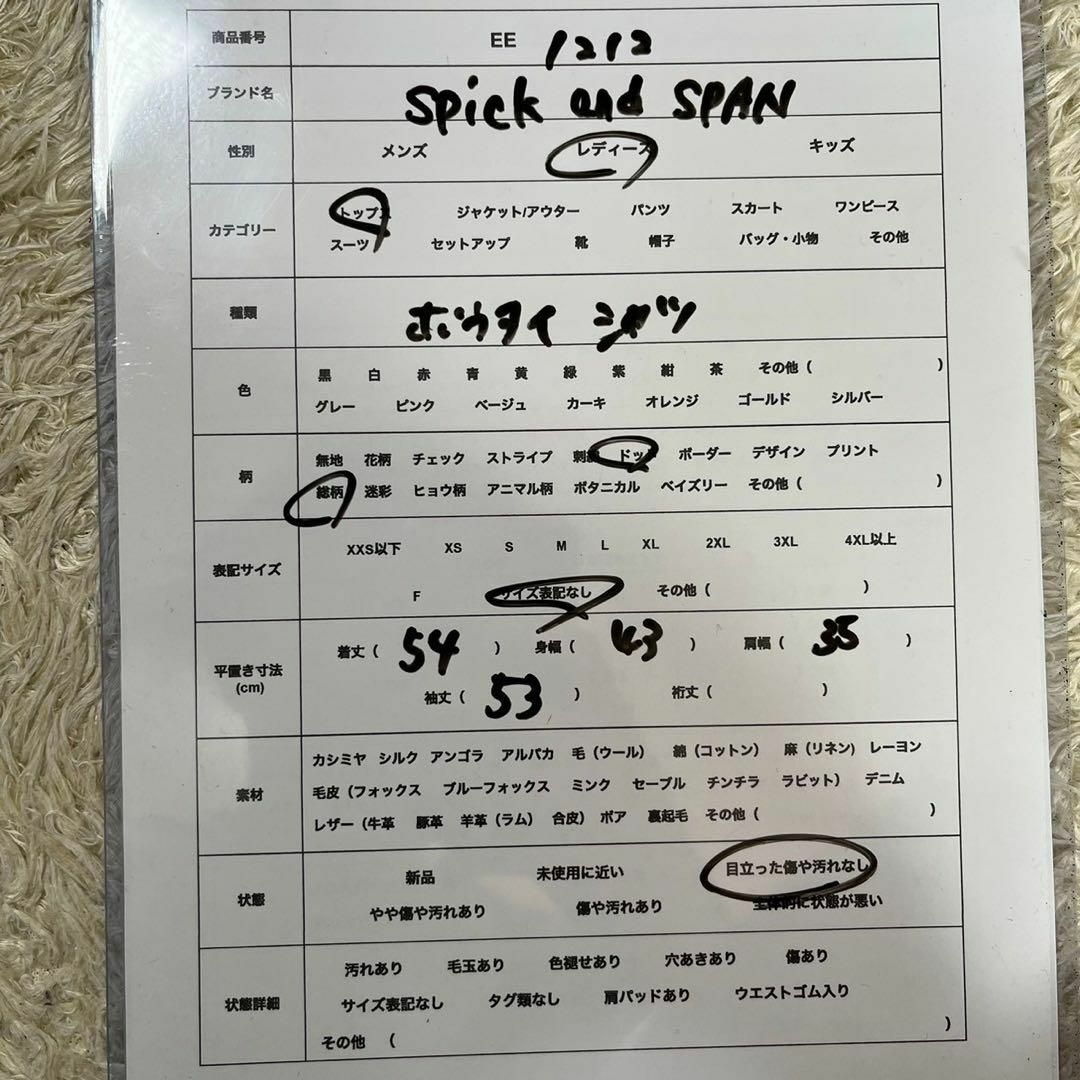 商品番号 EE 1212
ブランド名 Spick and SPAN
性別 メンズ レディース キッズ
カテゴリー
トップス ジャケット/アウター パンツ スカート ワンピース
スーツ セットアップ 靴 帽子 バッグ・小物 その他
種類 ボウタイ シャツ
色
黒 白 赤 青 黄 緑 紫 紺 茶 その他 ( )
グレー ピンク ベージュ カーキ オレンジ ゴールド シルバー
柄
無地 花柄 チェック ストライプ 刺繍 ドット ボーダー デザイン プリント
総柄 迷彩 ヒョウ柄 アニマル柄 ボタニカル ペイズリー その他 ( )
表記サイズ
XXS以下 XS S M L XL 2XL 3XL 4XL以上
F サイズ表記なし その他 ( )
平置き寸法
(cm)
着丈 ( 54 ) 身幅 ( 43 ) 肩幅 ( 35 )
袖丈 ( 53 ) 裄丈 ( )
素材
カシミヤ シルク アンゴラ アルパカ 毛（ウール） 綿（コットン） 麻（リネン) レーヨン
毛皮（フォックス ブルーフォックス ミンク セーブル チンチラ ラビット） デニム
レザー（牛革 豚革 羊革（ラム） 合皮） ボア 裏起毛 その他 ( )
状態
新品 未使用に近い 目立った傷や汚れなし
やや傷や汚れあり 傷や汚れあり 全体的に状態が悪い
状態詳細
汚れあり 毛玉あり 色褪せあり 穴あきあり 傷あり
サイズ表記なし タグ類なし 肩パッドあり ウエストゴム入り
その他 ( )